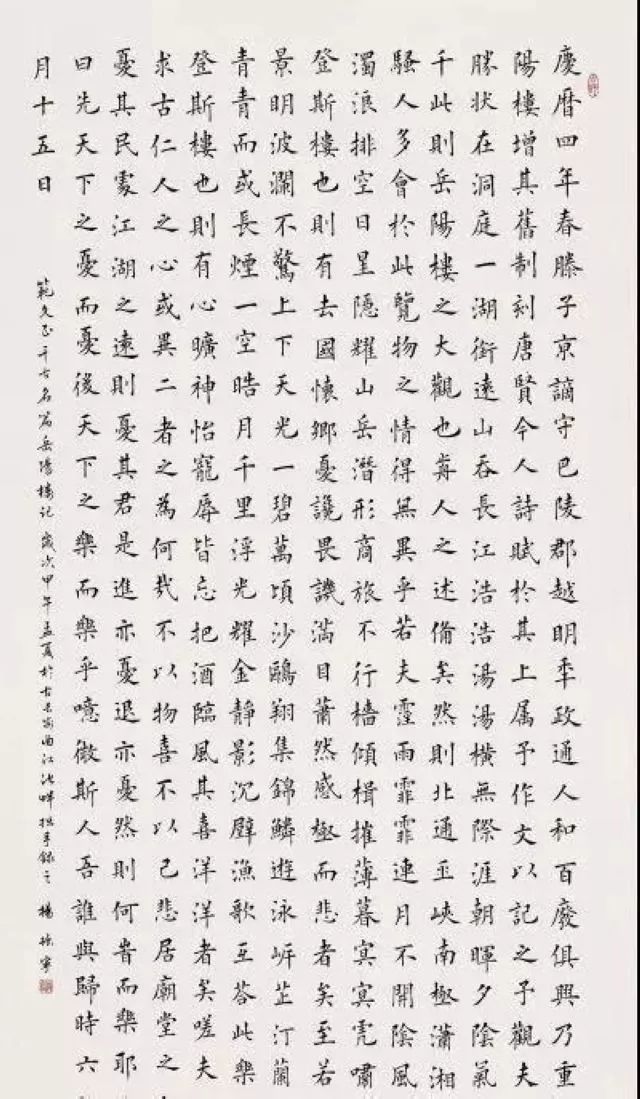 慶曆四年春滕子京謫守巴陵郡越明秊政通人和百廢俱興乃重
陽樓增其舊制刻唐賢今人詩賦於其上属予作文以記之予觀夫
勝狀在洞庭一湖銜遠山吞長江浩浩湯湯橫無際涯朝暉夕陰氣
千此則岳陽樓之大觀也歬人之述備矣然則北通巫峽南極瀟湘
騷人多會於此覽物之情得無異乎若夫霪雨霏霏連月不開陰風
濁浪排空日星隱耀山岳潛形商旅不行檣傾楫摧薄暮冥冥虎嘯
登斯樓也則有去國懷鄉憂讒畏譏滿目蕭然感極而悲者矣至若
景明波瀾不驚上下天光一碧萬頃沙鷗翔集錦鱗遊泳岸芷汀蘭
青青而或長煙一空皓月千里浮光耀金靜影沉璧漁歌互荅此樂
登斯樓也則有心曠神怡寵辱皆忘把酒臨風其喜洋洋者矣嗟夫
求古仁人之心或異二者之為何哉不以物喜不以己悲居廟堂之
憂其民處江湖之遠則憂其君是進亦憂退亦憂然則何旹而樂耶
曰先天下之憂而憂後天下之樂而樂乎噫微斯人吾誰與歸時六
月十五日
範文正千古名篇岳陽樓記歲次甲午孟夏於古長安曲江池畔拙手錄之楊